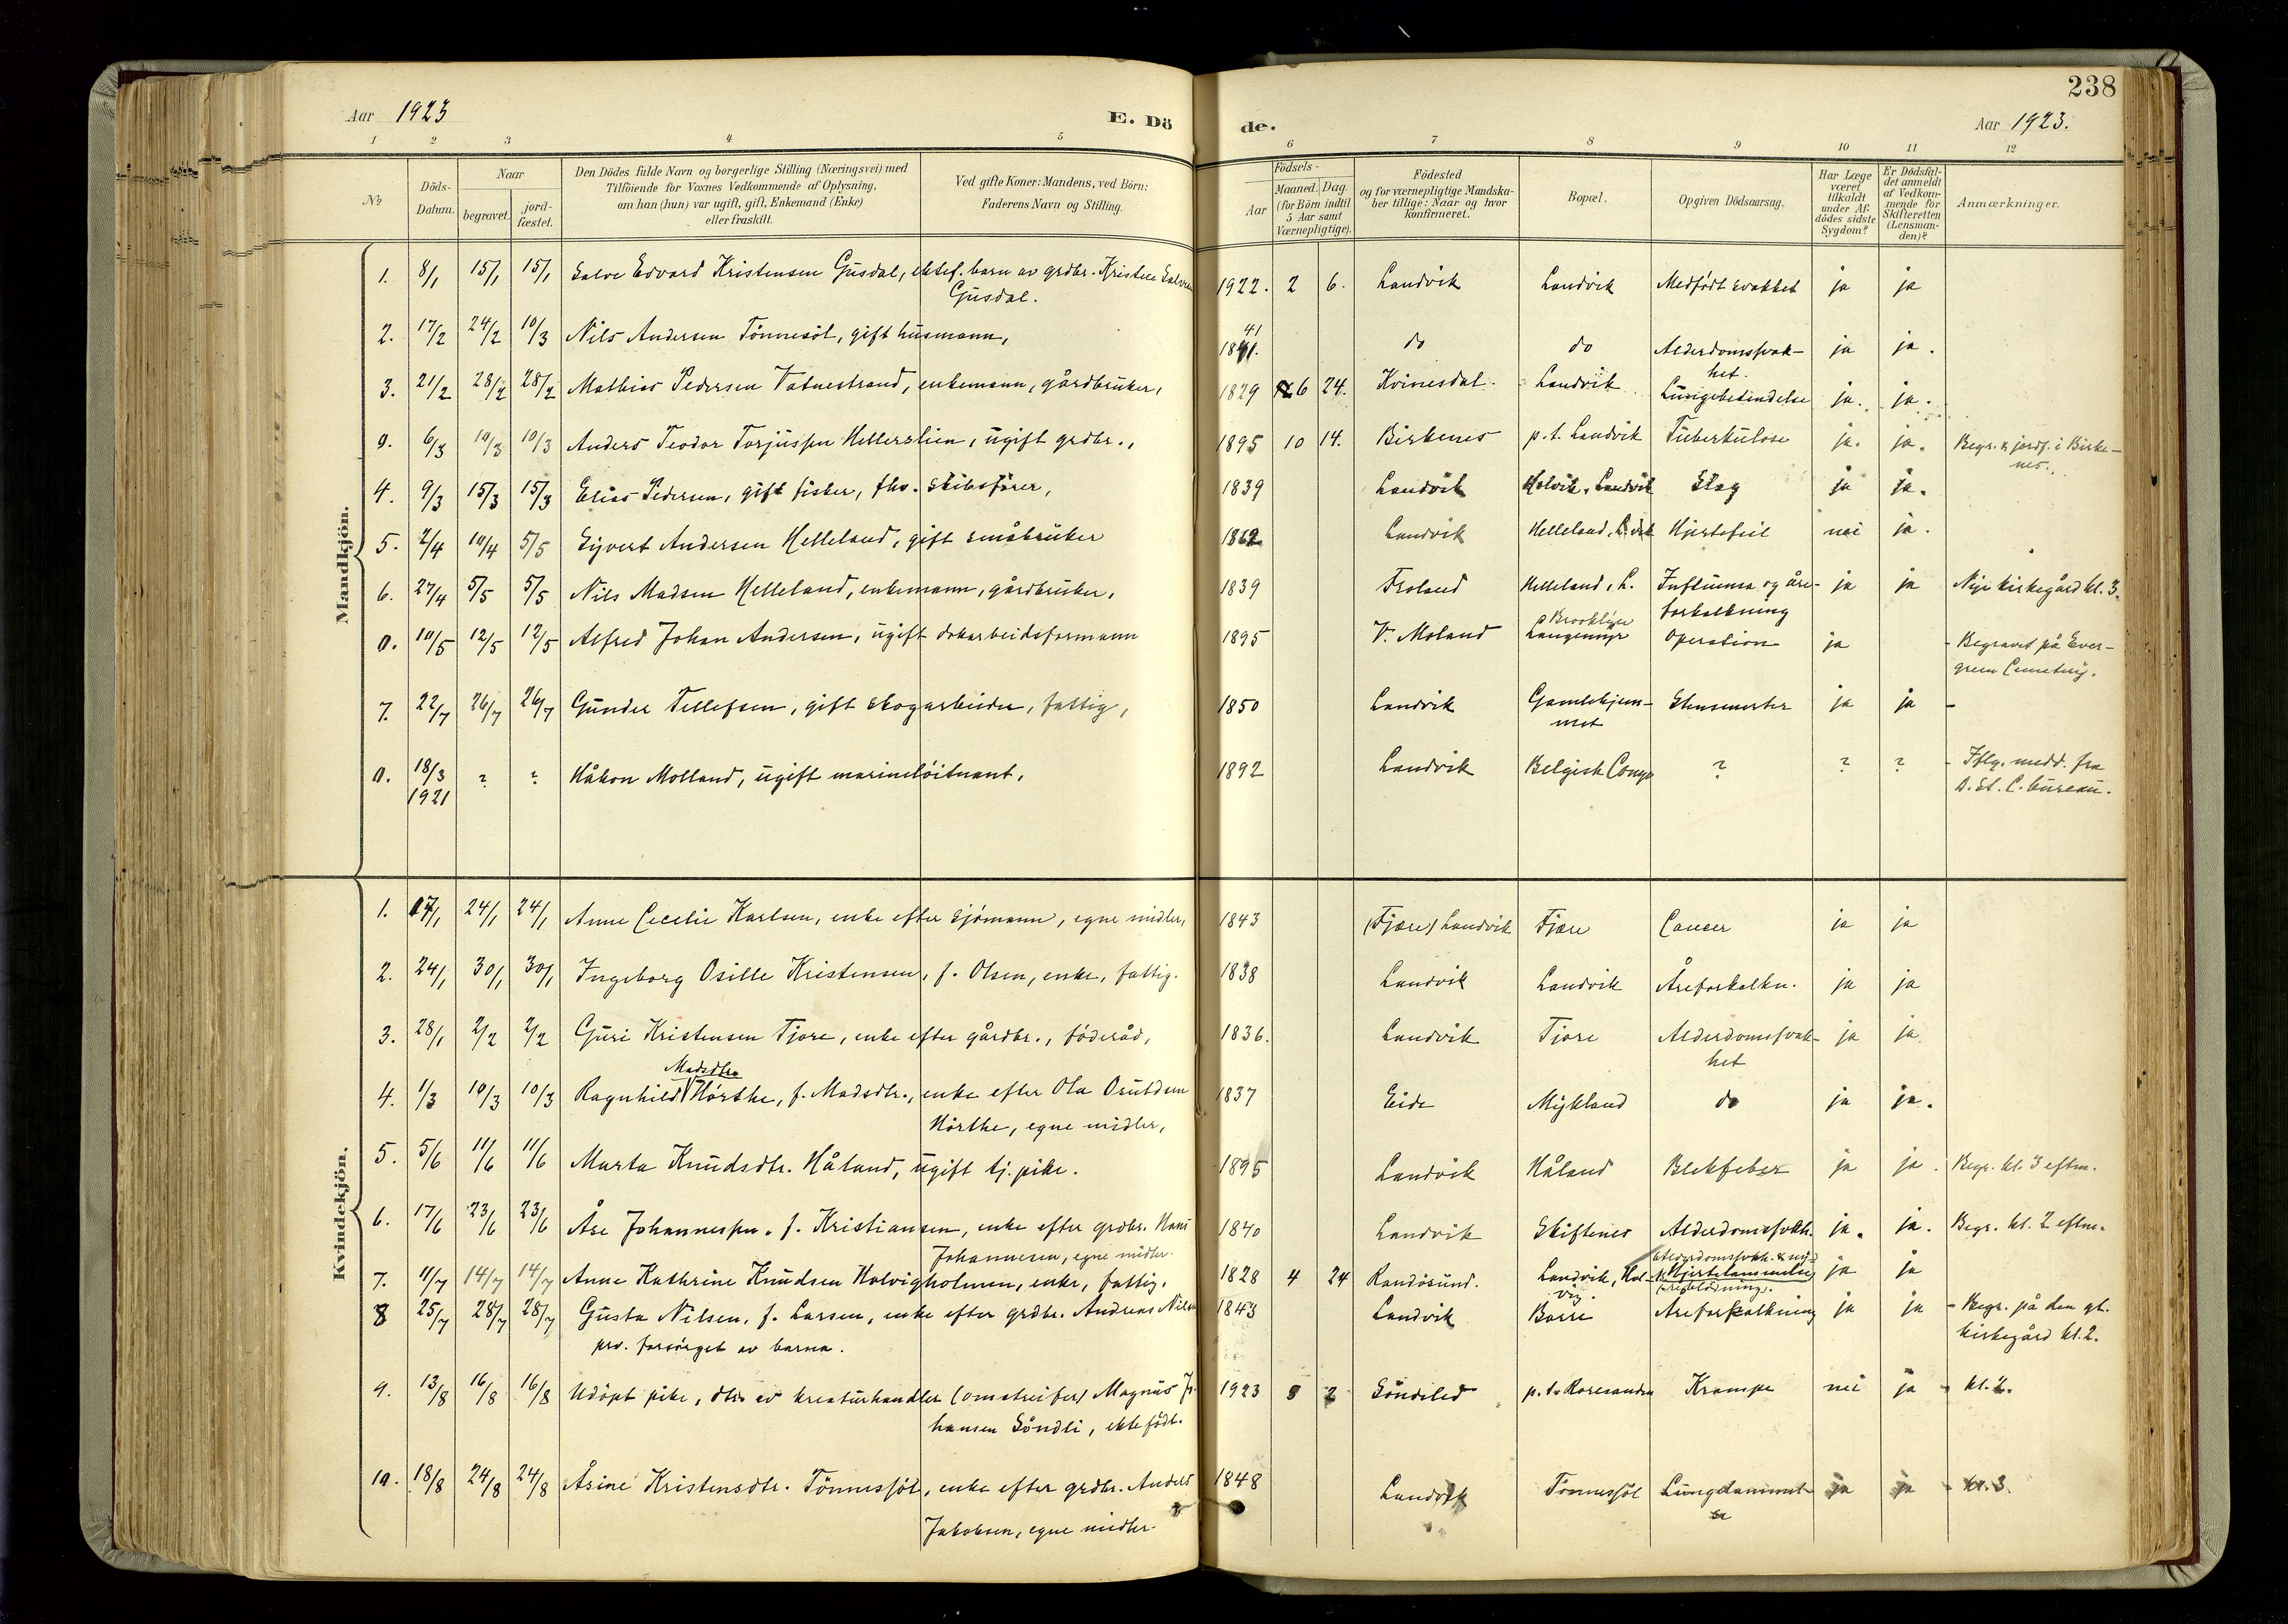 238
Aar 1923 E. Dö de. Aar 1923.
1 2 3 4 5 6 7 8 9 10 11 12
№ Döds-Datum. Naar begravet. jordfæstet. Den Dödes fulde Navn og borgerlige Stilling (Næringsvei) med Tilföiende for Voxnes Vedkommende af Oplysning, om han (hun) var ugift, gift, Enkemand (Enke) eller fraskilt. Ved gifte Koner: Mandens, ved Börn: Faderens Navn og Stilling. Födsels- Aar Maaned. Dag. (for Börn indtil 5 Aar samt Værnepligtige). Födested og for værnepligtige Mandskaber tillige: Naar og hvor konfirmeret. Bopæl. Opgiven Dödsaarsag. Har Læge været tilkaldt under Afdödes sidste Sygdom? Er Dödsfaldet anmeldt af Vedkommende for Skifteretten (Lensmanden)? Anmærkninger.
Mandkjön.
1. 8/1 15/1 15/1 Salve Edvard Kristensen Gusdal, ektef. barn av grdbr. Kristen Salvesen 1922. 2 6. Landvik Landvik Medfödt svakhet ja ja
Gusdal.
2. 17/2 24/2 10/3 Nils Andersen Tönnesöl, gift husmann, 1841. 41 do do Alderdomssvak- ja ja.
het.
3. 21/2 28/2 28/2 Mathias Pedersen Vatnestrand, enkemann, gårdbruker, 1829 6 24. Kvinesdal. Landvik Lungebetendelse ja. ja.
0. 6/3 10/3 10/3 Anders Teodor Torjussen Hellerslien, ugift grdbr., 1895 10 14. Birkenes p.t. Landvik Tuberkulose ja. ja. Begr. & jordf. i Birke-
nes.
4. 9/3 15/3 15/3 Elias Pedersen, gift fisker, fhv. skibsförer, 1839 Landvik Holvik, Landvik Slag ja ja.
5. 2/4 10/4 5/5 Syvert Andersen Helleland, gift småbruker 1862 Landvik Helleland, L.vik Hjertefeil nei ja.
6. 27/4 5/5 5/5 Nils Madsen Helleland, enkemann, gårdbruker, 1839 Froland Helleland, L. Influensa og åre- ja ja Nye kirkegård kl. 3.
forkalkning
0. 10/5 12/5 12/5 Alfred Johan Andersen, ugift dokarbeidsformann 1895 V. Moland Brooklyn Langemyr Operation ja - Begravet på Ever-
green Cemetery.
7. 22/7 26/7 26/7 Gunder Tellefsen, gift skogarbeider, fattig, 1850 Landvik Gamlehjem- Stensmerter ja ja -
met
0. 18/3 ? ? Håkon Molland, ugift marinelöitnant, 1892 Landvik Belgisk Congo ? ? ? - Iflg. medd. fra
1921 D. St. C. bureau.
Kvindekjön.
1. 17/1 24/1 24/1 Anne Cecelie Karlsen, enke efter sjömann, egne midler, 1843 (Fjære) Landvik Fjære Cancer ja ja
2. 24/1 30/1 30/1 Ingeborg Osille Kristensen, f. Olsen, enke, fattig. 1838 Landvik Landvik Åreforkalkn. ja ja
3. 28/1 2/2 2/2 Guri Kristensen Tjore, enke efter gårdbr., föderåd, 1836. Landvik Tjore Alderdomssvak- ja ja
het
Madsdtr.
4. 1/3 10/3 10/3 Ragnhild Hörthe, f. Madsdtr., enke efter Ola Osuldsen 1837 Eide Mykland do ja ja.
Hörthe, egne midler,
5. 5/6 11/6 11/6 Marta Knudsdtr. Håland, ugift tj. pike. 1895 Landvik Håland Blekfeber ja ja. Begr. kl. 3 eftm.
6. 17/6 23/6 23/6 Åse Johannessen, f. Kristiansen, enke efter grdbr. Hans 1840 Landvik Skiftenes Alderdomssvkh. ja. ja. Begr. kl. 2 eftm.
Johannesen, egne midler.
Alderdomssvkh. &
7. 11/7 14/7 14/7 Anne Kathrine Knudsen Holvigholmen, enke, fattig. 1828 4 24 Randösund. Landvik, Hol- Hjertelammelse ja ja
vig.
8 25/7 28/7 28/7 Gusta Nilsen, f. Larsen, enke efter grdbr. Andreas Nilsen 1843 Landvik Borre Åreforkalkning ja ja - Begr. på den gl.
priv. forsörget av barna. kirkegård kl. 2.
9. 13/8 16/8 16/8 Udöpt pike, dtr. av kreaturhandler (omstreifer) Magnus Jo- 1923 8 2 Söndeled p.t. Roresanden Krampe nei ja - kl. 2.
hansen Söndli, ektefödt.
10. 18/8 24/8 24/8 Åsine Kristensdtr. Tönnessöl, enke efter grdbr. Anders 1848 Landvik Tönnesöl Lungelammel- ja ja - kl. 3.
se
Jakobsen, egne midler.